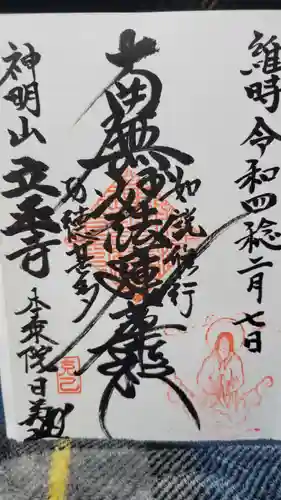 維時令和四稔二月七日
如説修行
南無妙法蓮華経
功徳甚多
神明山立本寺